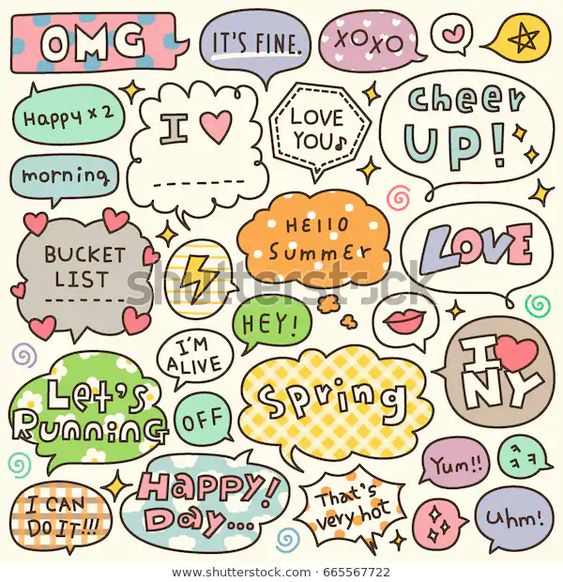 OMG
IT'S FINE.
XOXO
Happy x 2
I
LOVE
YOU♪
cheer
UP!
morning
BUCKET
LIST
HELLO
Summer
LOVE
HEY!
I'M
ALIVE
I
NY
Let's
Running
OFF
Spring
Yum!!
ㅋㅋ
ㅋ
I CAN
DO IT!!!
HAPPY!
DAY...
That's
very hot
Uhm!
shutterstock
www.shutterstock.com · 665567722